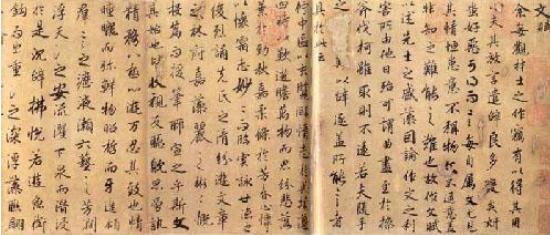 文賦
余每觀材士之作竊有以得其用
心夫其放言遣辭良多變矣妍
蚩好惡可得而言每自屬文尤見
其情恒患意不稱物文不逮意蓋
非知之難能之難也故作文賦
以述先士之盛藻因論作文之利
害所由他日殆可謂曲盡至於操
斧伐柯雖取則不遠若夫隨手
之以辭逐蓋所能之者
具於此云
佇中區以玄覽頤情志於典墳遵
四時以歎逝瞻萬物而思紛悲落
葉於勁秋喜柔條於芳春心懍
以懷霜志眇而臨雲詠世德之
俊烈誦先民之清芬遊文章
之林府嘉藻麗之彬慨
投篇而援筆聊宣之乎斯文
其始也皆收視反聽耽思傍訊
精騖八極心遊萬仞其致也情
曈曨而彌鮮物昭晰而互進傾
群言之瀝液漱六藝之芳潤
浮天淵之安流濯下泉而潛浸
於是沈辭怫悅若遊魚銜
鉤出重淵之深浮藻聯翩